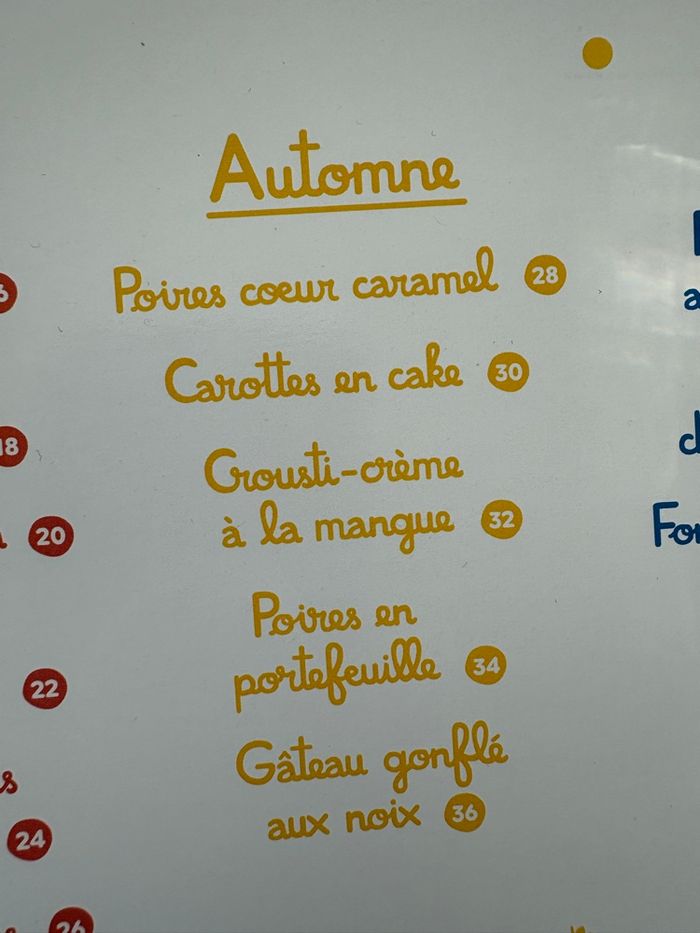 Automne
Poires coeur caramel 28
Carottes en cake 30
Crousti-crème
à la mangue 32
Poires en
portefeuille 34
Gâteau gonflé
aux noix 36
18
20
22
24
26